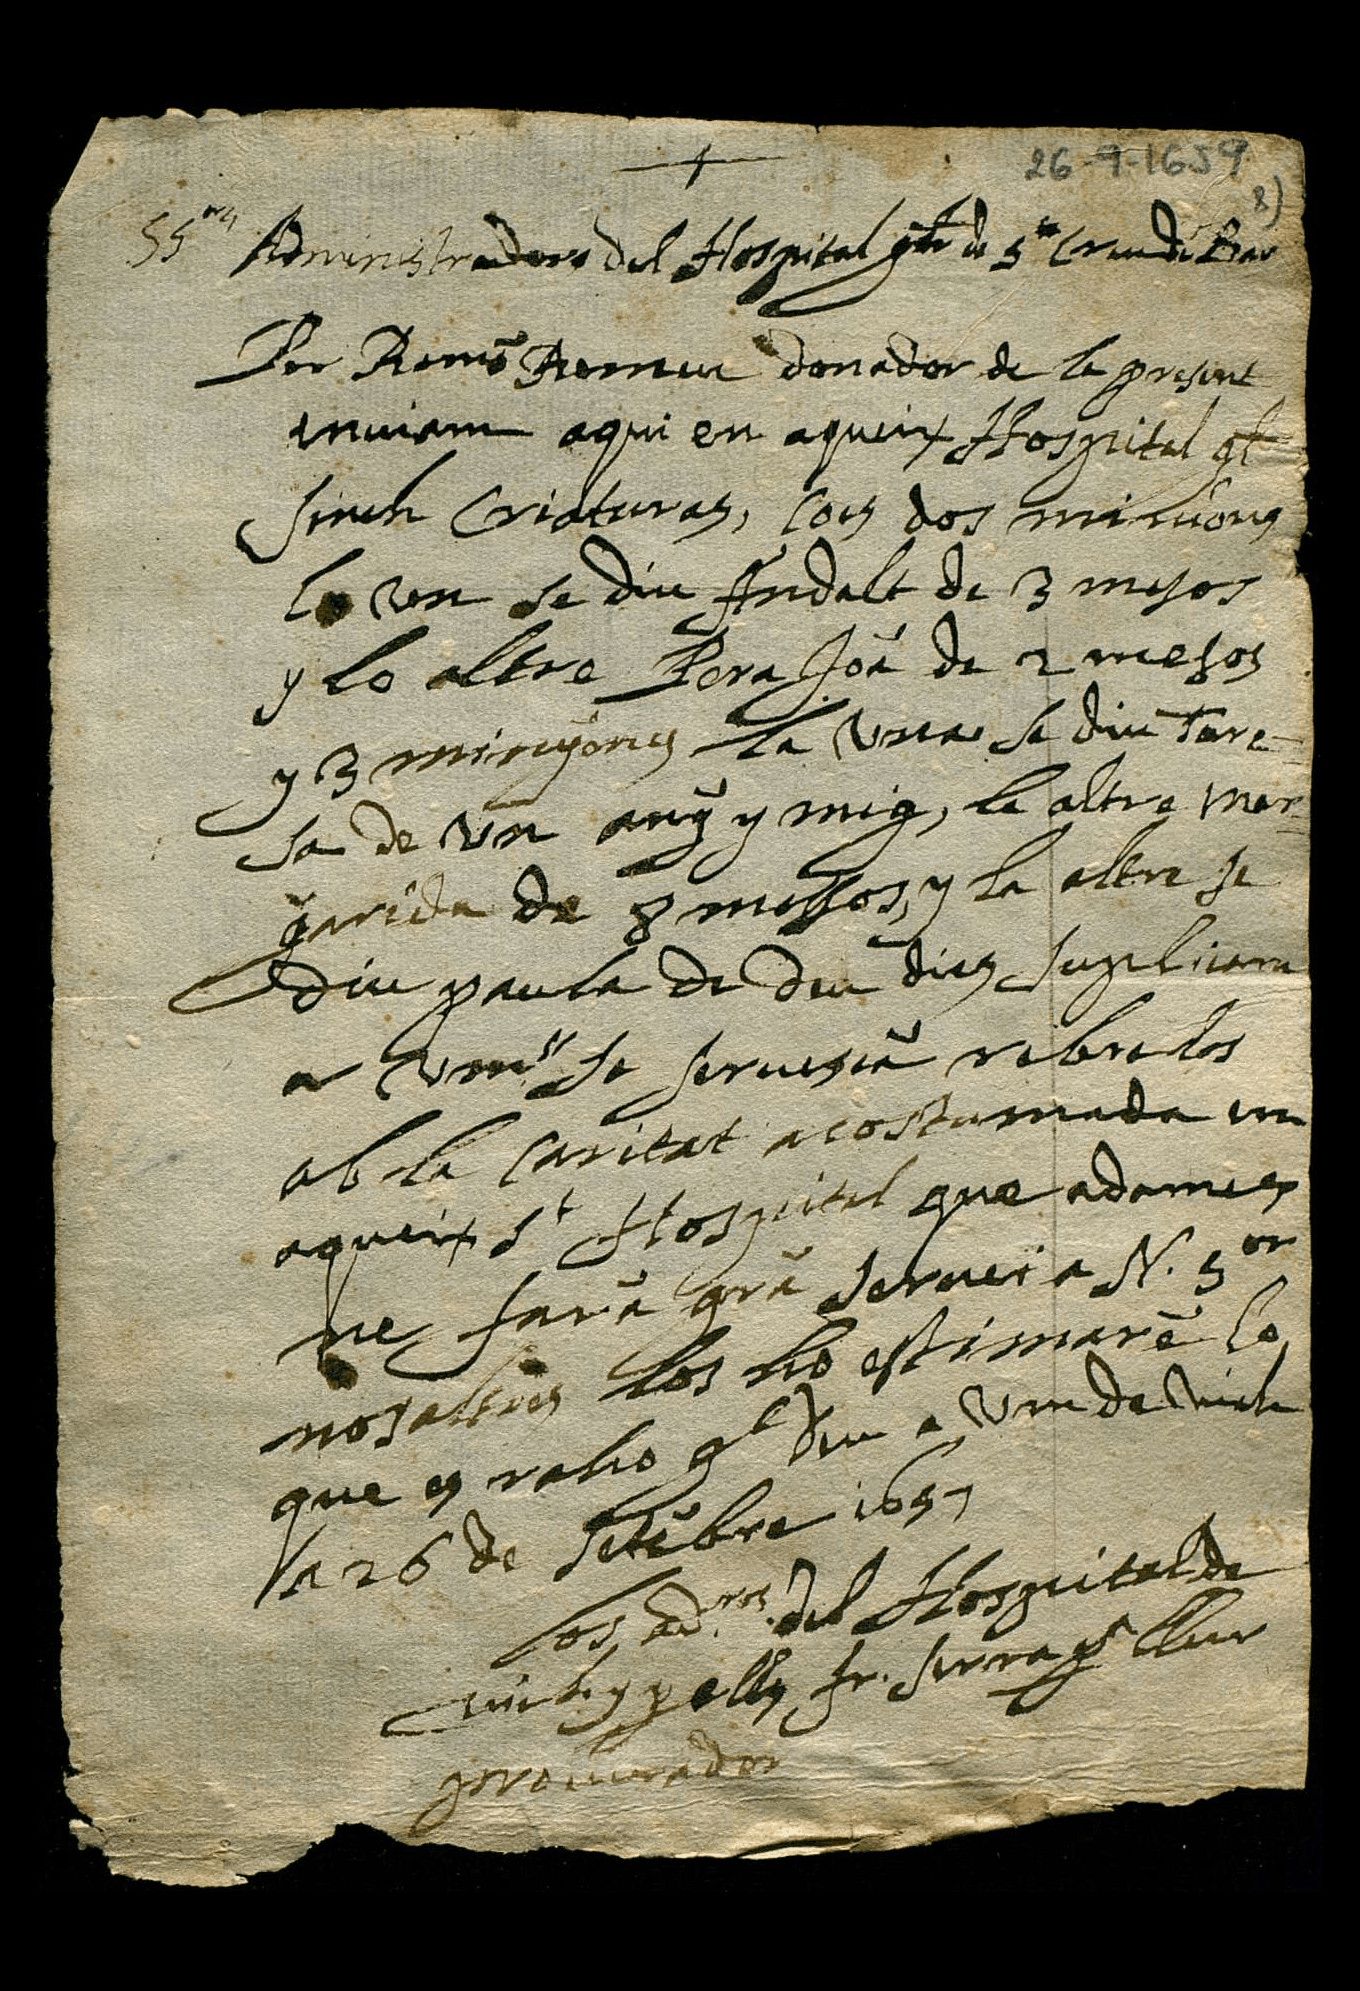 26-9-1659
8)
SS.res Administradors del Hospital gñl de Sta Creu de Bar
Per Ramō Romeu donador de la present
enviam aqui en aqueix Hospital gl
sinch Criaturas, los dos minions
lo un se diu Andalt de 3 mesos
y lo altre Pera Joā de 2 mesos
y 3 minyones la una se diu Tere-
sa de un añy y mig, la altra Mar-
garida de 8 messos, y la altre se
diu paula de deu dies suplicam
a vms se servescā rebrelos
ab la Caritat acostumada en
aqueix St Hospital que ademes
ne farā grā servei a N. Sor
nosaltres los ho estimarē lo
que es raho gl Deu a Vm de Vich
y a 26 de setēbre 1657
los adrors del Hospital de
vich y p ells fr. serra ps llur
procurador